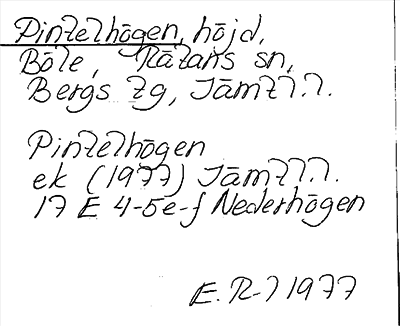 Pintelhögen, höjd,
Böle, Rätans sn,
Bergs tg, Jämtl.l.
Pintelhögen
ek (1977) Jämtl.l.
17 E 4-5e-f Nederhögen
E.R-l 1977